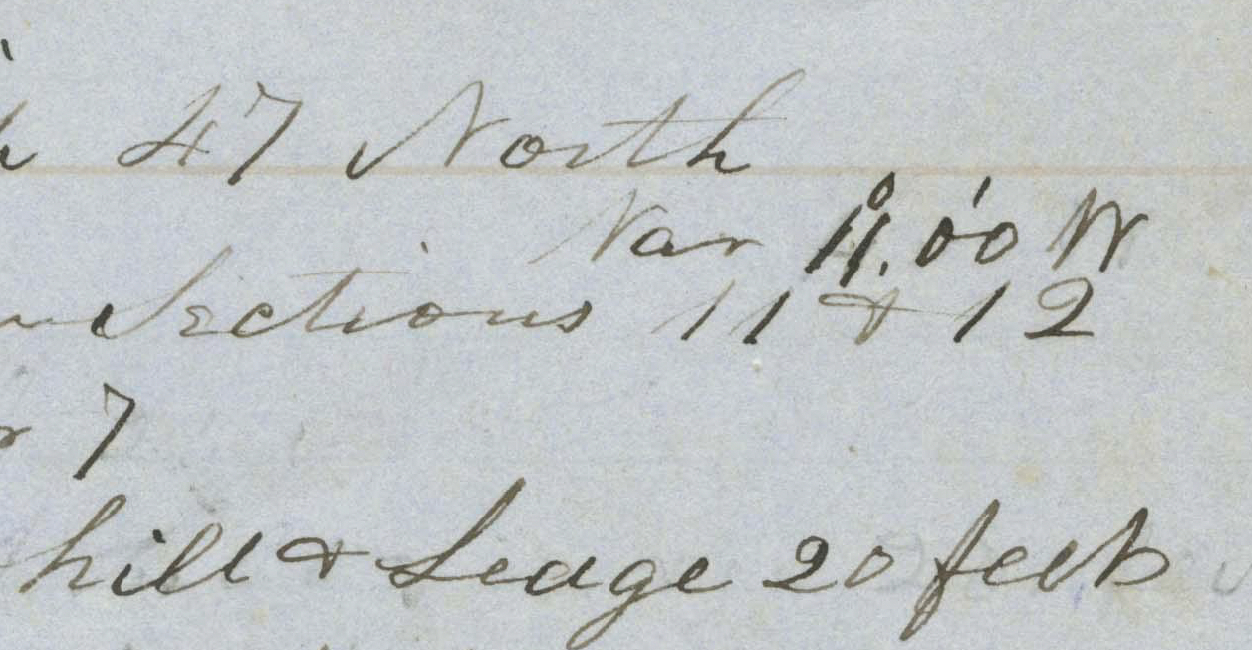 47 North
Var 11°.00' W
Sections 11 & 12
7
hill & Leage 20 feet